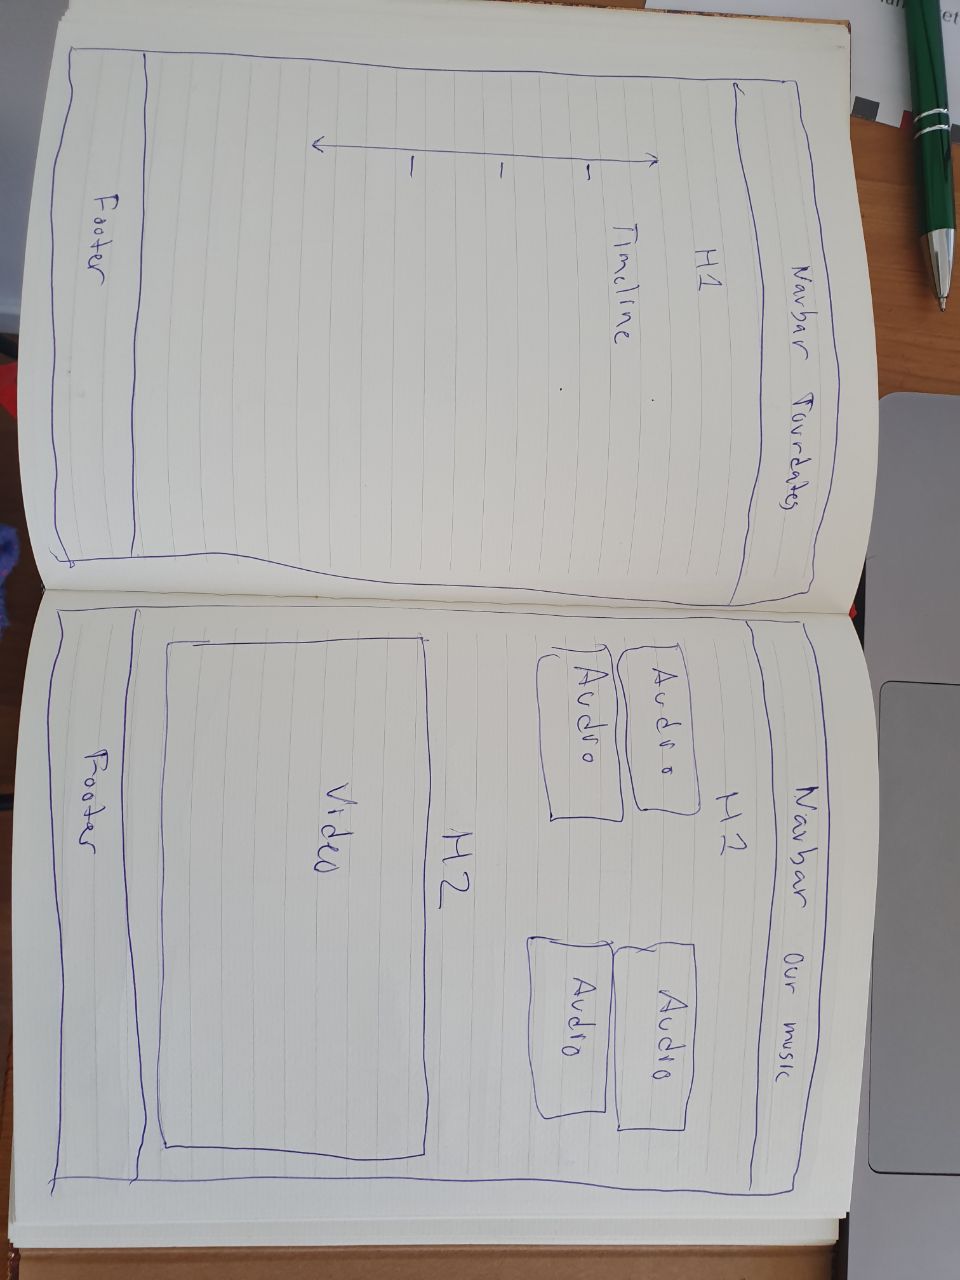 Navbar Tourdates
H1
Timeline
Footer
Navbar Our music
H2
Audio Audio
Audio Audio
H2
Video
Footer